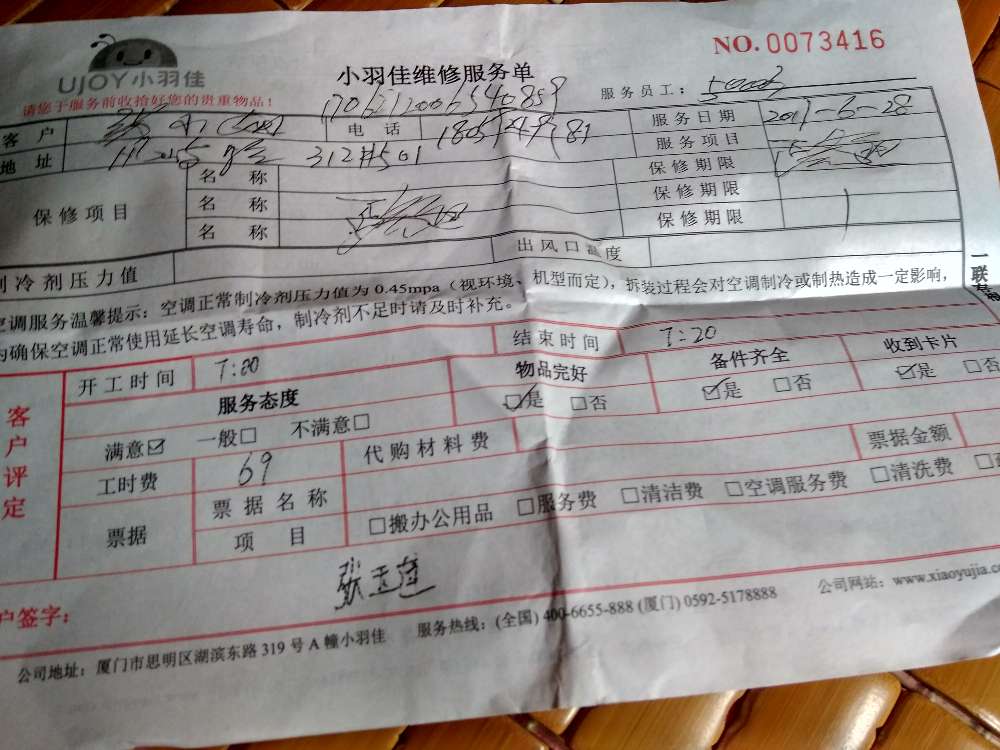 NO.0073416
UJOY小羽佳
小羽佳维修服务单
请您于服务前收拾好您的贵重物品！
服务员工：
客户 电话 服务日期 2017-6-28
地址 312#501 服务项目
保修项目 名称 保修期限
名称 保修期限
名称 保修期限
制冷剂压力值 出风口温度
空调服务温馨提示：空调正常制冷剂压力值为 0.45mpa（视环境、机型而定），拆装过程会对空调制冷或制热造成一定影响，
为确保空调正常使用延长空调寿命，制冷剂不足时请及时补充。
一联
客户评定
开工时间 7:00 结束时间 7:20
服务态度 物品完好 备件齐全 收到卡片
满意☑ 一般□ 不满意□ ☑是 □否 ☑是 □否 ☑是 □否
工时费 69 代购材料费 票据金额
票据 票据名称
项目 □搬办公用品 □服务费 □清洁费 □空调服务费 □清洗费
户签字：
张玉莲
公司地址：厦门市思明区湖滨东路 319 号 A 幢小羽佳 服务热线：(全国) 400-6655-888 (厦门) 0592-5178888 公司网站：www.xiaoyujia.c